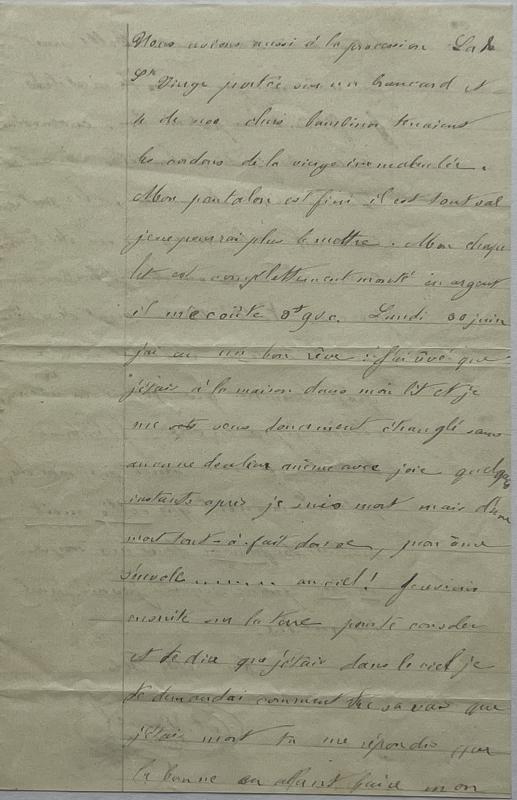 Nous avions aussi à la procession La
Ste Vierge portée sur un brancard et
4 de nos chers bambinos tenaient
les cordons de la vierge immaculée.
Mon pantalon est fini il est tout sal
je ne pourrai plus le mettre. Mon chape
let est complettement monté en argent
il me coûte Lundi 30 juin
j'ai eu un bon rêve : j'ai rêvé que
j'étais à la maison dans mon lit et je
me suis doucement étranglé sans
aucune douleur même avec joie quelques
instants après je suis mort mais d'une
mort tout-à-fait douce, mon âme
s'envole ........ au ciel! Je reviens
ensuite sur la terre pour te consoler
et te dire que j'étais dans le ciel je
te demandai comment tu savais que
j'étais mort tu me répondis que
la bonne en allant faire mon